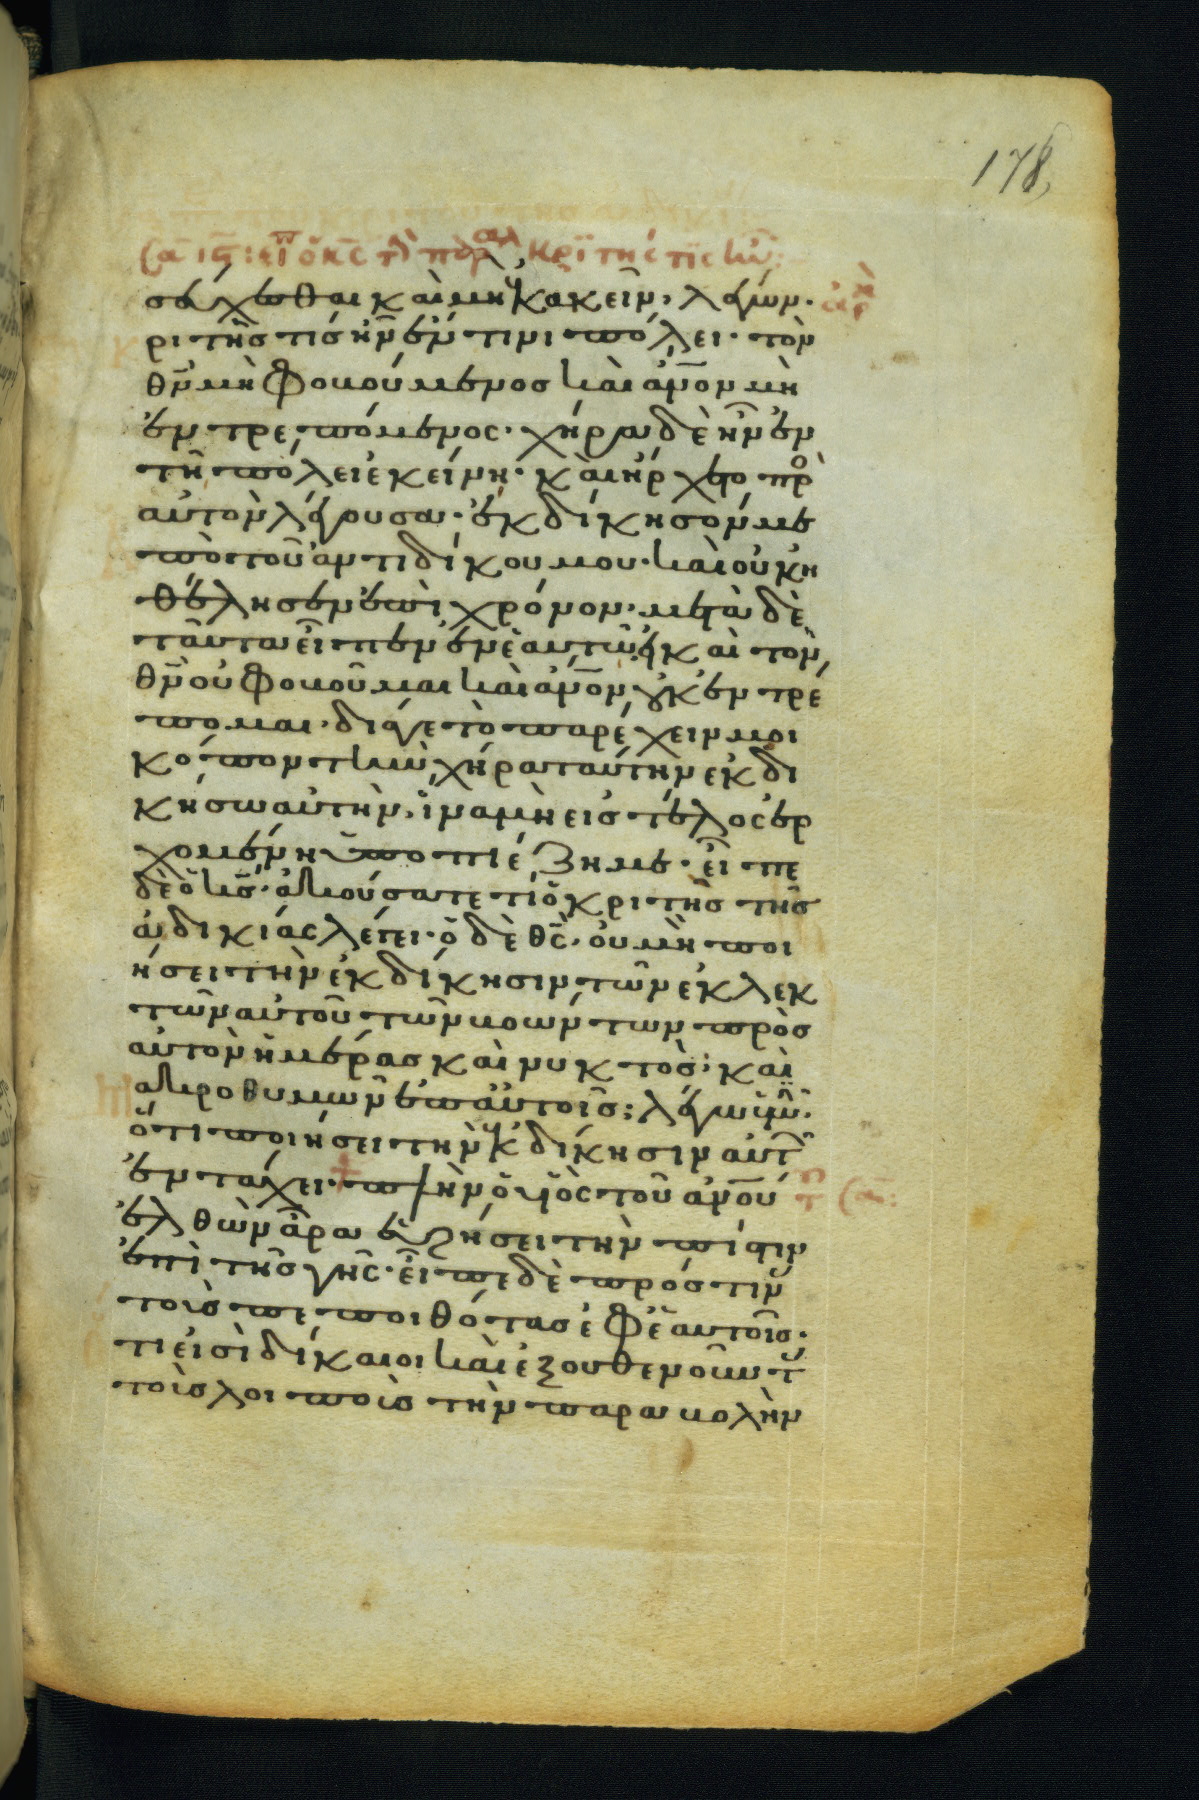 178
κριτής τις ἦν
σεύχεσθαι καὶ μὴ ἐκκακεῖν, λέγων·
ριτῆς τις ἦν ἐν τινι πόλει· τὸν
θν̅ μὴ φοβούμενος καὶ ἀν̅ον μὴ
ἐντρεπόμενος· χήρα δὲ ἦν ἐν
τῇ πόλει ἐκείνη· καὶ ἤρχετο πρὸ
αὐτὸν λέγουσα· ἐκδίκησόν με
ἀπὸ τοῦ ἀντιδίκου μου· καὶ οὐκ ἠ
θέλησεν ἐπὶ χρόνον· μετὰ δὲ
ταῦτα εἶπεν ἐν ἑαυτῶ· εἰ καὶ τὸν
θν̅ οὐ φοβοῦμαι καὶ ἀν̅ον οὐκ ἐντρέ
πομαι· διά γε τὸ παρέχειν μοι
κόπον τὴν χήραν ταύτην ἐκδι
κήσω αὐτὴν, ἵνα μὴ εἰς τέλος ἐρ
χομένη ὑποπιέζη με· εἶπε
δὲ ὁ κς̅· ἀκούσατε τί ὁ κριτῆς τῆς
ἀδικίας λέγει· ὁ δὲ θς̅· οὐ μὴ ποι
ήσει τὴν ἐκδίκησιν τῶν ἐκλεκ
τῶν αὐτοῦ τῶν βοώντων πρὸς
αὐτὸν ἡμέρας καὶ νυκτός; καὶ
μακροθυμῶν ἐπ' αὐτοῖς; λέγω ὑμῖν·
ὅτι ποιήσει τὴν ἐκδίκησιν αὐτῶν
ἐν τάχει· πλὴν ὁ υἱὸς τοῦ ἀν̅ου
ἐλθὼν ἆρα εὑρήσει τὴν πίστιν
ἐπὶ τῆς γῆς· εἶπε δὲ πρός τινας
τοὺς πεποιθότας ἐφ' ἑαυτοῖς·
ὅτι εἰσὶ δίκαιοι καὶ ἐξουθενοῦντας
τοὺς λοιποὺς τὴν παραβολὴν